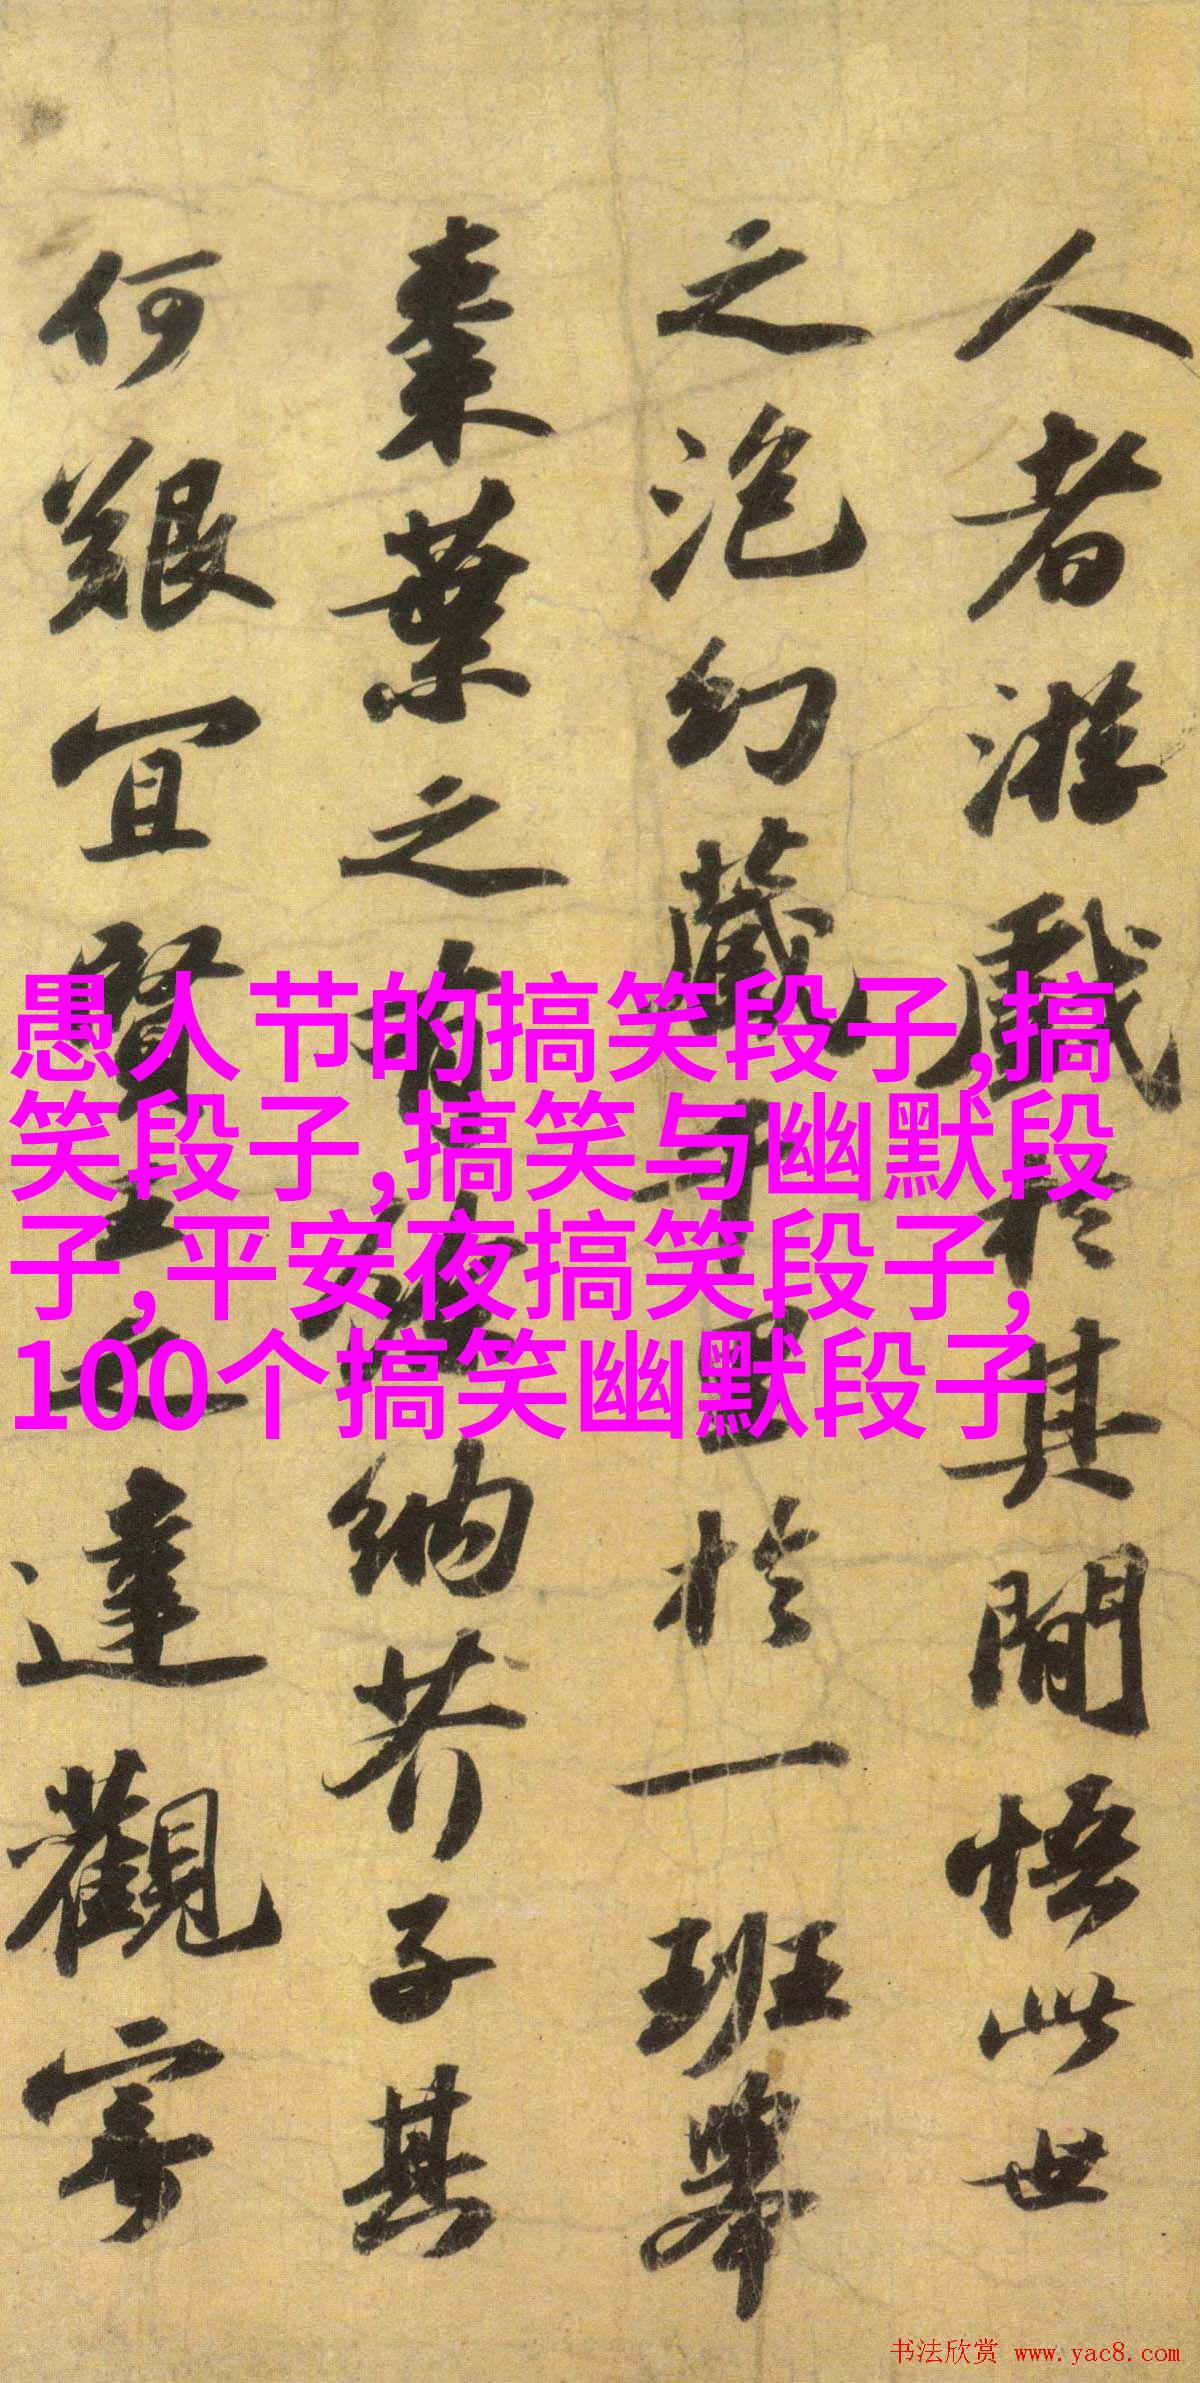 人者游戲於其間悟此世
之泡幻藏千里於一班舉
棗葉之有餘納芥子其
何艱宜賢王之達觀寄
愚人节的搞笑段子,搞
笑段子,搞笑与幽默段
子,平安夜搞笑段子,
100个搞笑幽默段子
书法欣赏 www.yac8.com